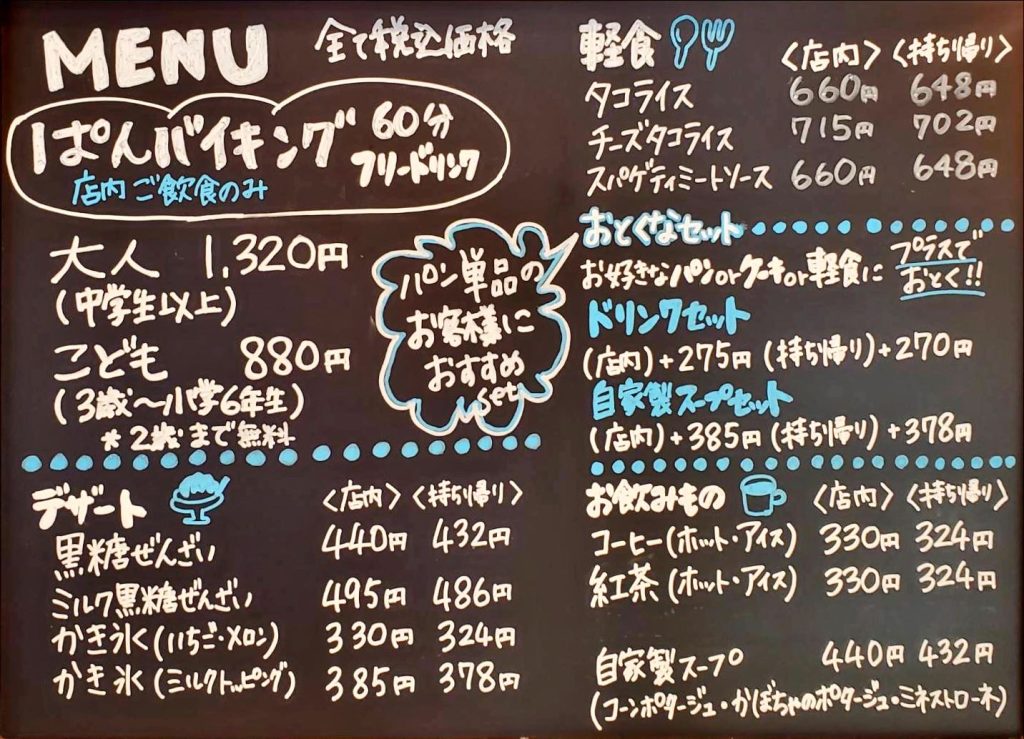 MENU 全て税込価格
ぱんバイキング 60分
フリードリンク
店内ご飲食のみ
大人 1,320円
(中学生以上)
こども 880円
(3歳〜小学6年生)
*2歳まで無料
パン単品の
お客様に
おすすめ
set
デザート 〈店内〉〈持ち帰り〉
黒糖ぜんざい 440円 432円
ミルク黒糖ぜんざい 495円 486円
かき氷(いちご・メロン) 330円 324円
かき氷(ミルクトッピング) 385円 378円
軽食 〈店内〉〈持ち帰り〉
タコライス 660円 648円
チーズタコライス 715円 702円
スパゲティミートソース 660円 648円
おとくなセット
お好きなパンorケーキor軽食に プラスで
おとく!!
ドリンクセット
(店内)+275円 (持ち帰り)+270円
自家製スープセット
(店内)+385円 (持ち帰り)+378円
お飲みもの 〈店内〉〈持ち帰り〉
コーヒー(ホット・アイス) 330円 324円
紅茶(ホット・アイス) 330円 324円
自家製スープ 440円 432円
(コーンポタージュ・かぼちゃのポタージュ・ミネストローネ)